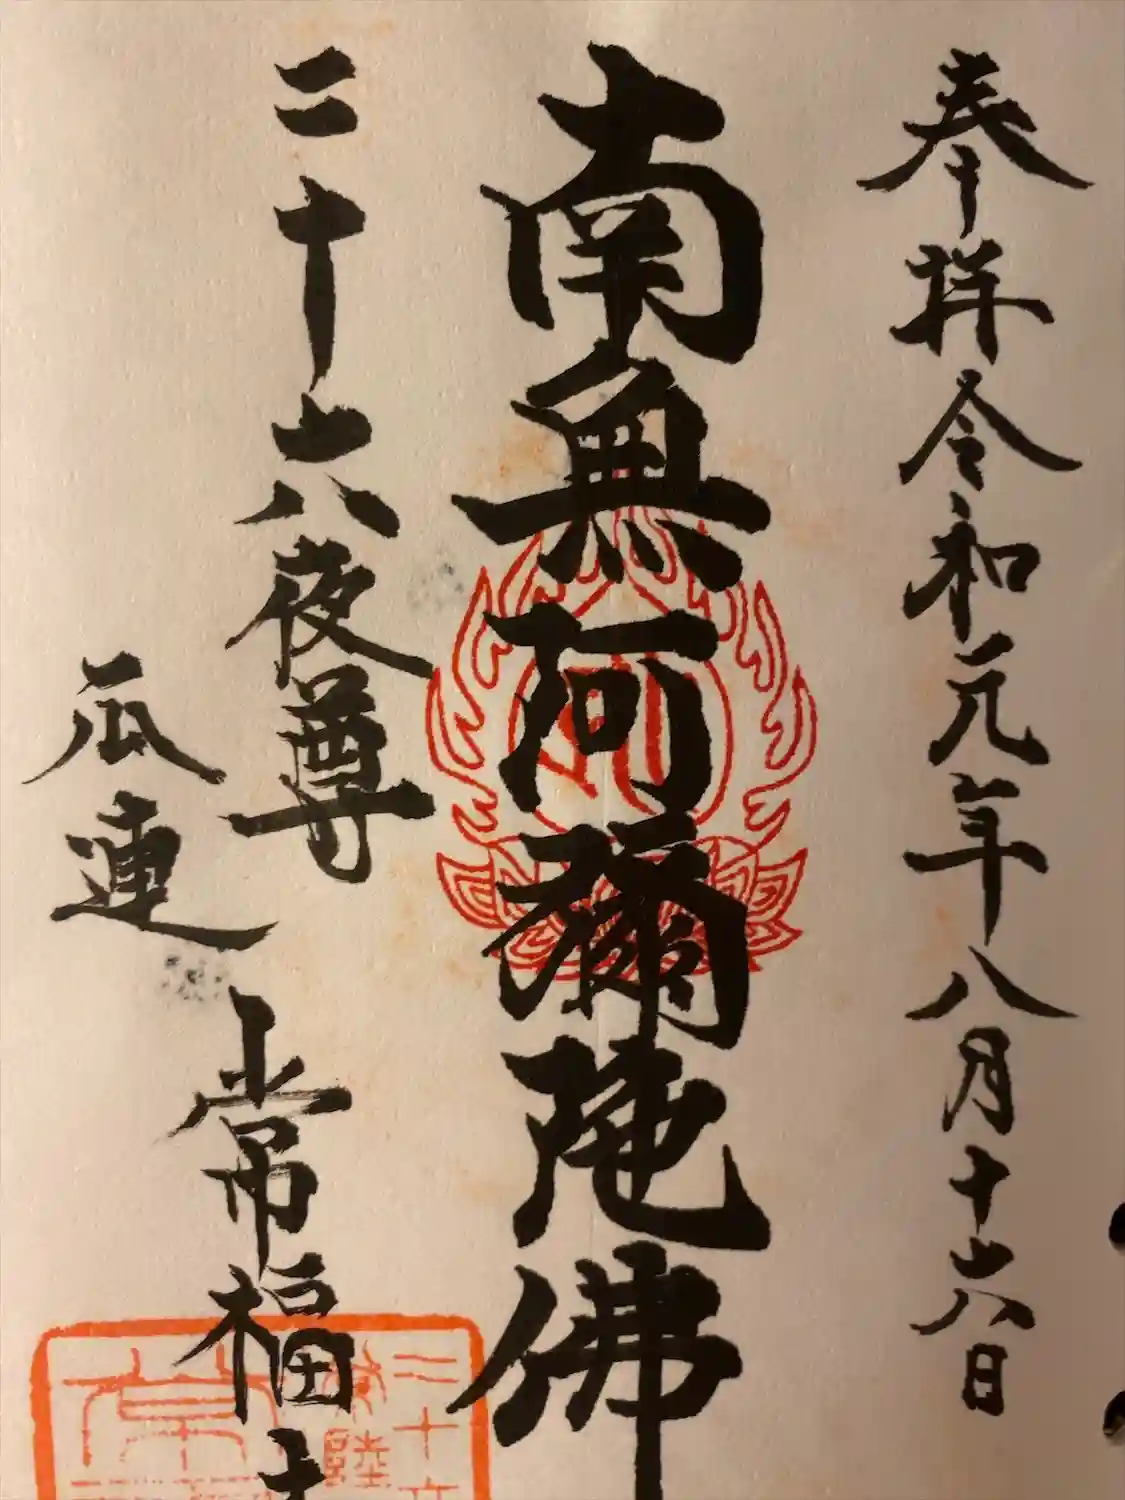 奉拝 令和元年八月十六日
南無阿彌陀佛
二十六夜尊
瓜連 常福寺